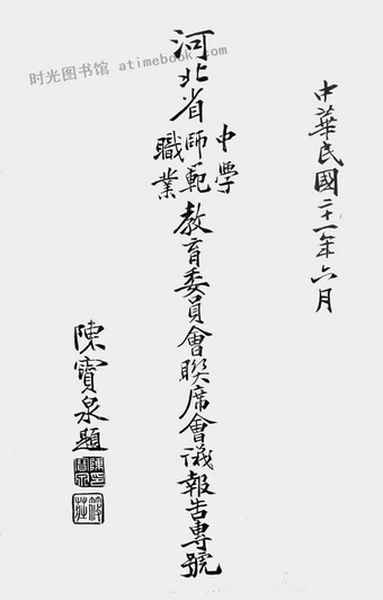 中華民國二十一年六月
河北省
中學
師範
職業
教育委員會聯席會議報告專號
陳寶泉題
时光图书馆 atimebook.com